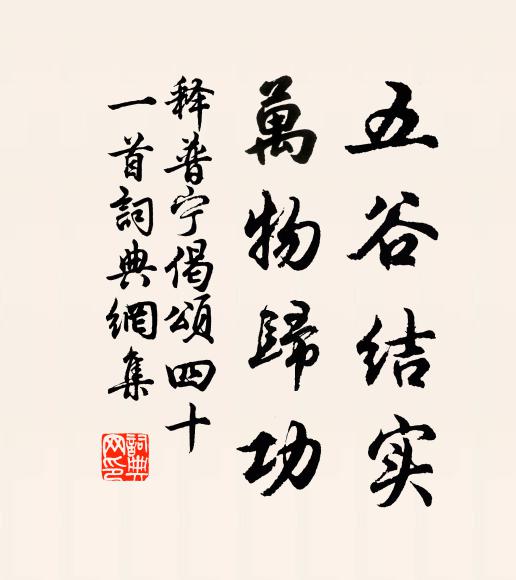 五谷结实
萬物歸功
释普宁偈頌四十
一首詞典網集
詞典
网印